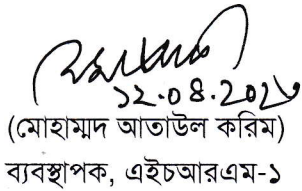 ১২.০৪.২০২৬
(মোহাম্মদ আতাউল করিম)
ব্যবস্থাপক, এইচআরএম-১